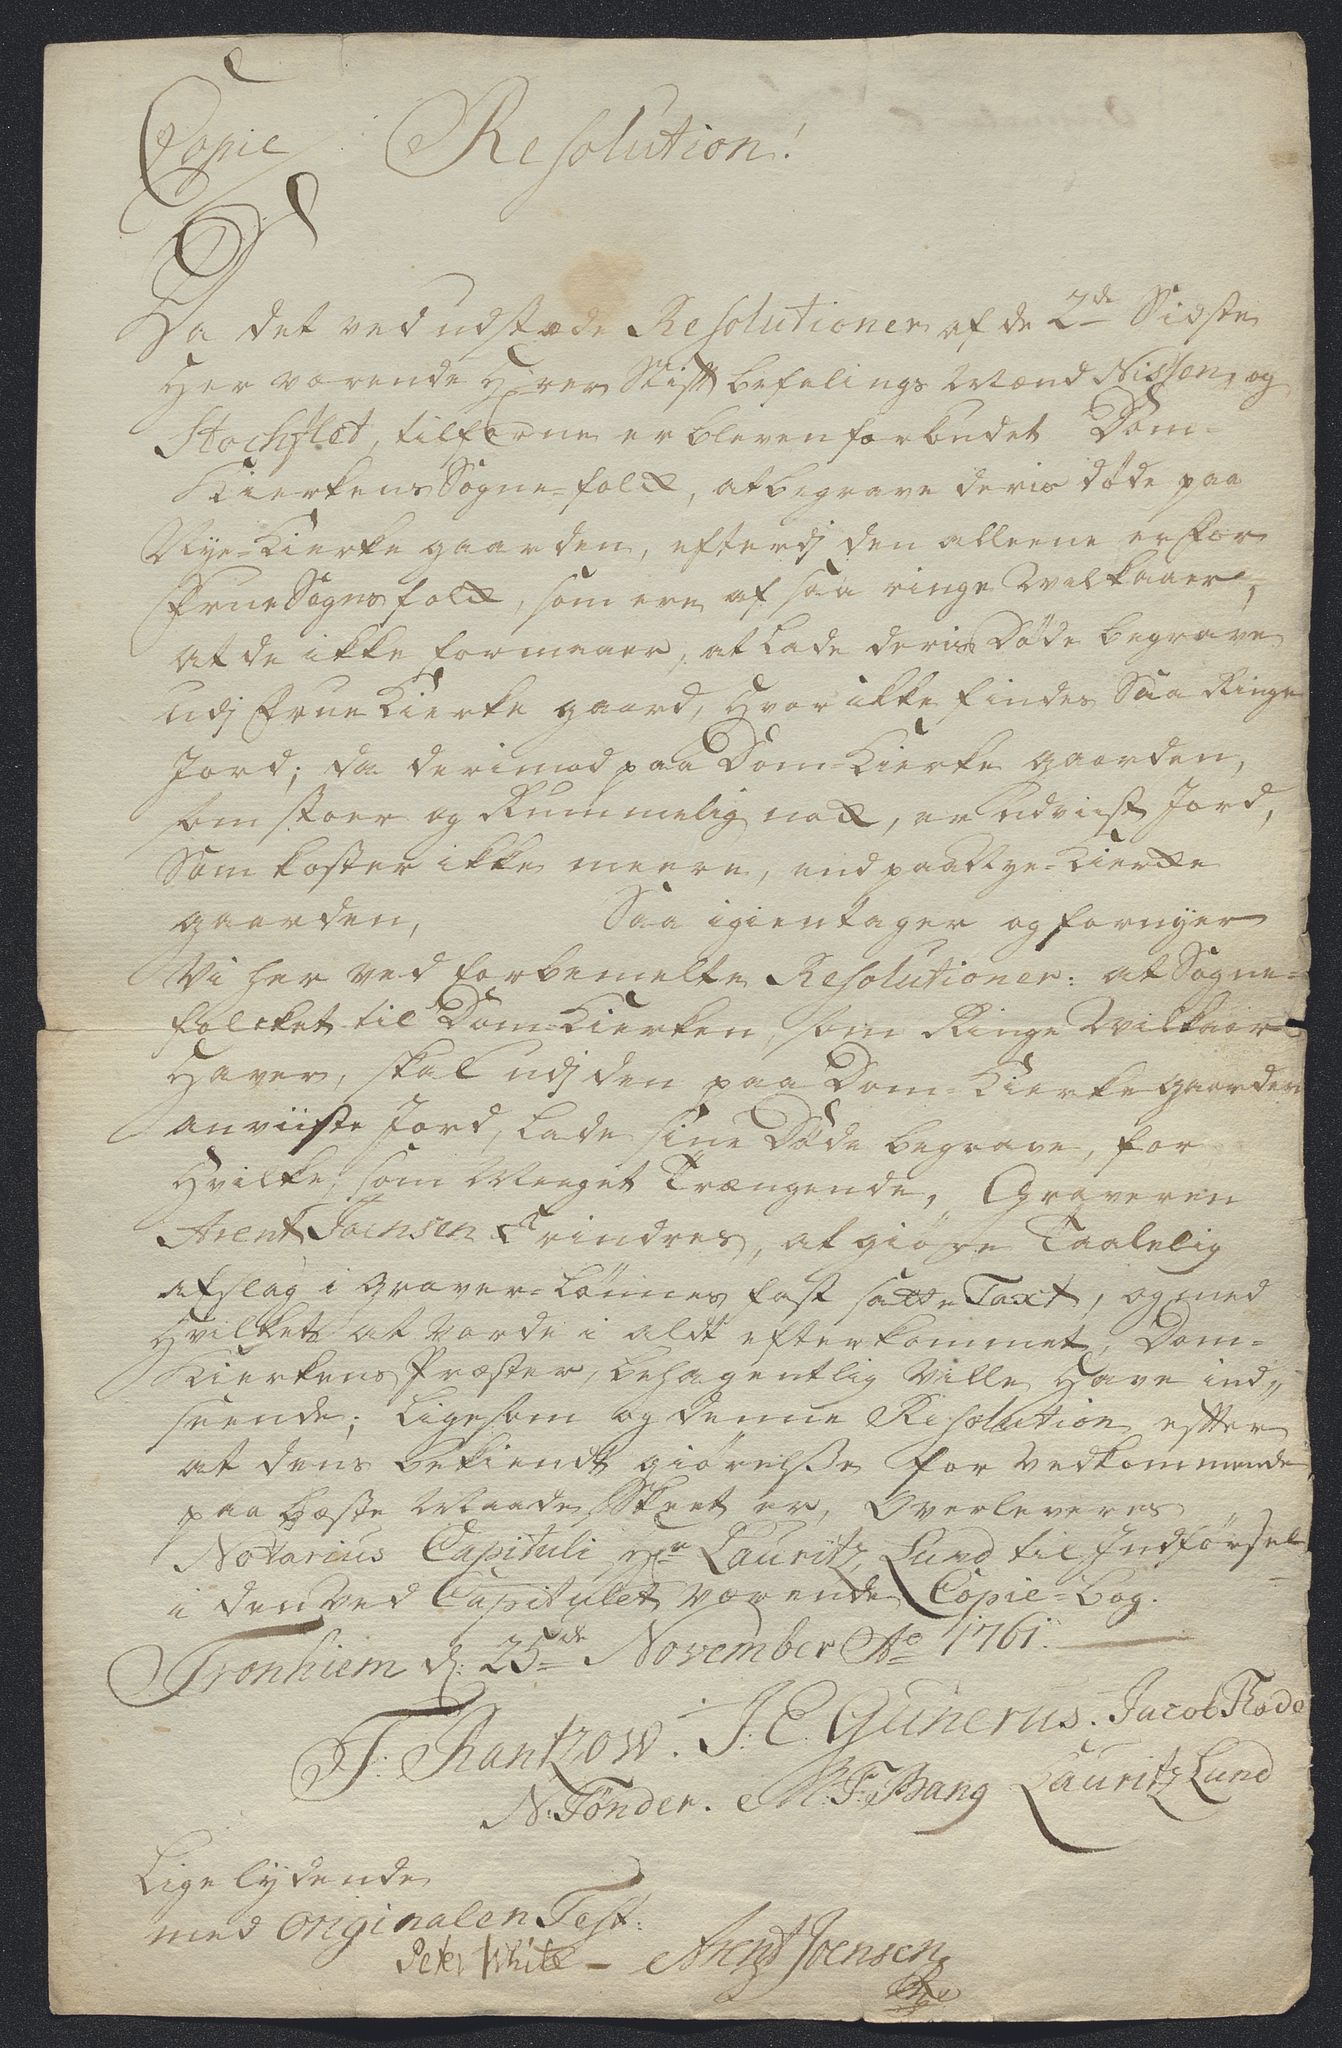 Copie Resolution!
Da det ved udstæde Resolutioner af de 2de Sidste
Her værende Hrer Stiftbefalings Mænd Nissen, og
Stochflet, tilforne er bleven forbudet Dom-
Kierkens Sogne-folk, at begrave deris døde paa
Nye-Kierke gaarden, efterdj den alleene er for
Frue Sogns folk, som ere af saa ringe Wilkaaer,
at de ikke formaaer, at Lade deris Døde begrave
udj Frue Kierke gaard, Hvor ikke findes Saa Ringe
Jord; da derimod paa Dom-Kierke gaarden,
som stoer og Rummelig nok, er udviist Jord,
Som koster ikke meere, end paa Nye-Kierke
gaarden, Saa igientager og fornyer
Vi her ved forbemelte Resolutioner: at Sogne-
folcket til Dom-Kierken, som Ringe Wilkaar
Haver, skal udj den paa Dom-Kierke gaarden
anviiste Jord, Lade sine Døde begrave, for
Hvilke, som Meeget Trængende, Graveren
Arent Joensen Erindres, at giøre Taalelig
afslag i Graver-Lønnes fast satte Taxt, og med
Hvilket at vorde i aldt efterkommet, Dom-
Kierkens Præster, behagentlig Ville Have ind,,
seende; Ligesom og denne Resolution efter
at dens bekiendt giørelsse for Vedkommende
paa bæste Maade Skeet er, Overleveres
Notarius Capituli Hr Lauritz Lund til Indførsel
i den ved Capitulet værende Copie-bog.
Tronhiem d: 25de November Ao 1761.
F: Rantzow. J. E. Gunerus. Jacob Rode
N: Tønder. M: F: Bang Lauritz Lund
Lige lydende
med Originalen Test:
Peter White - Arent Joensen